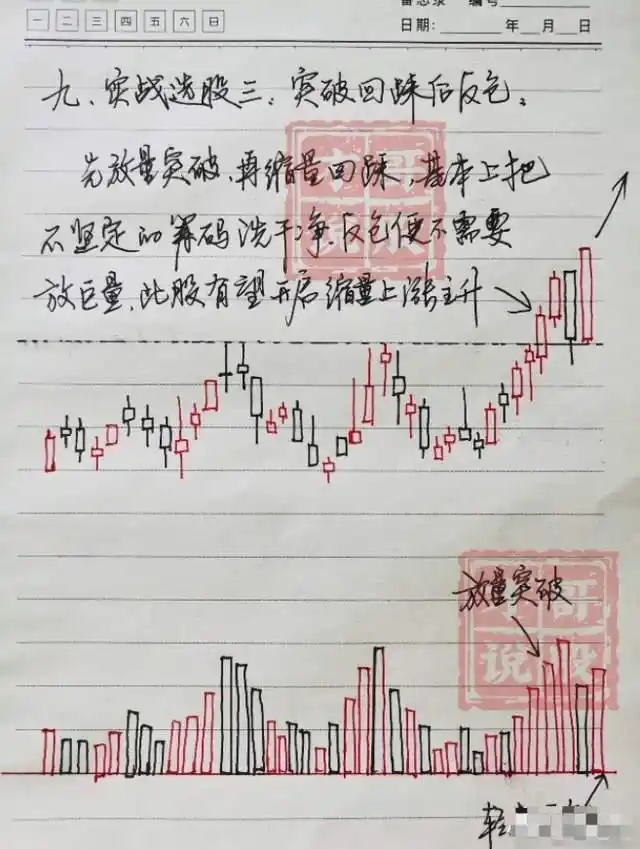 备忘录 编号
一 二 三 四 五 六 日
日期: 年 月 日
九、实战选股三：突破回踩后反包。
先放量突破，再缩量回踩，基本上把
不坚定的筹码洗干净，反包便不需要
放巨量，此股有望开启缩量上涨主升
放量突破
哥
说 股
轻